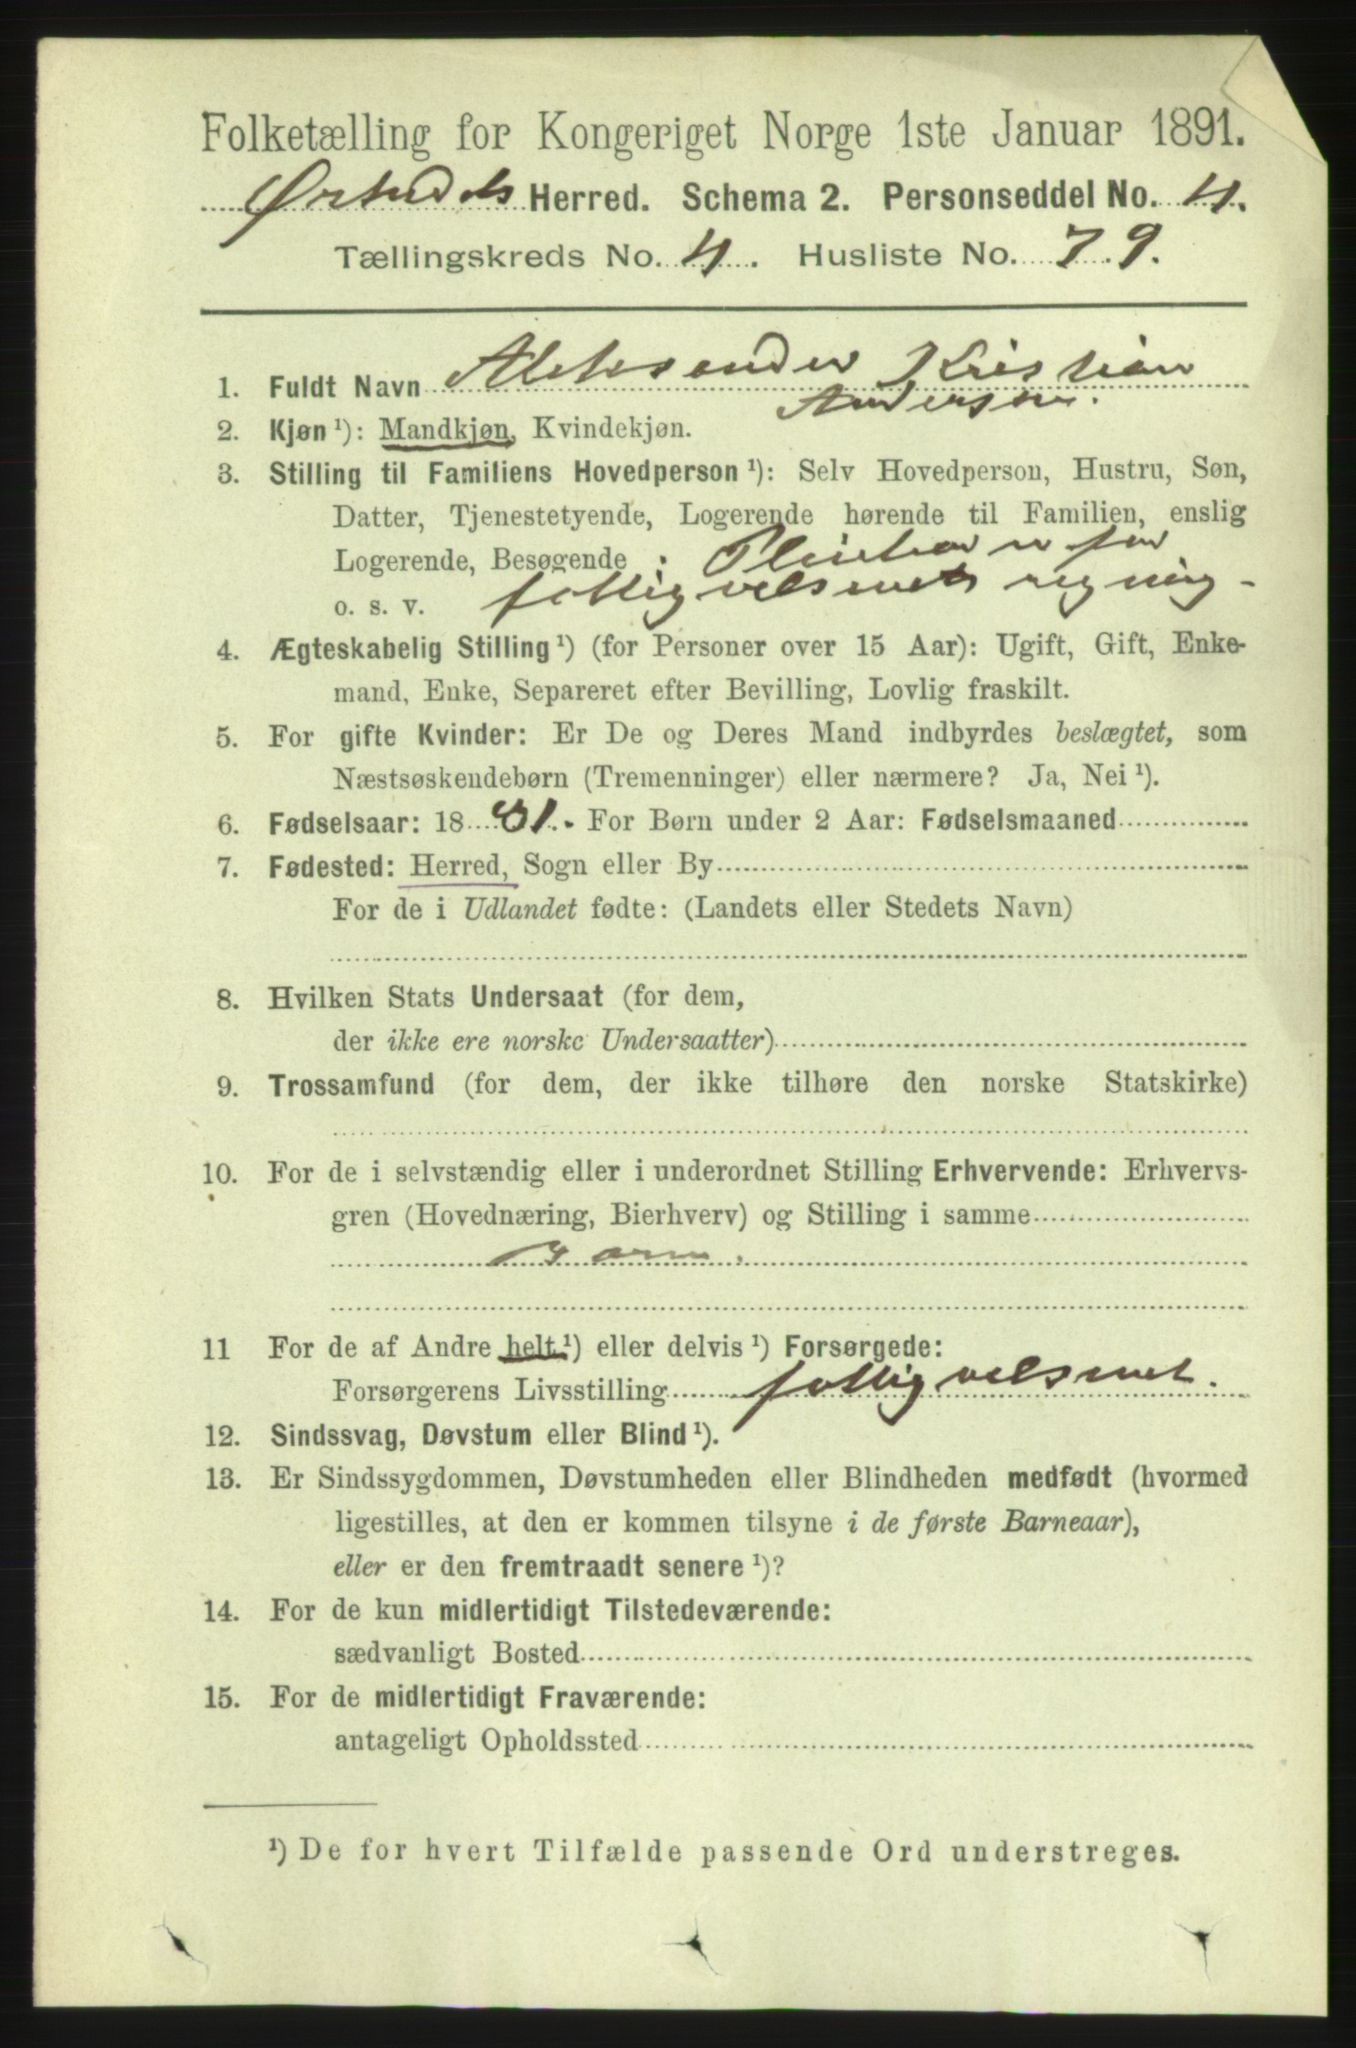 Folketælling for Kongeriget Norge 1ste Januar 1891.
Herred. Schema 2. Personseddel No. 4.
Tællingskreds No. 4. Husliste No. 79.
1. Fuldt Navn Aleksander Kristian
Andersen.
2. Kjøn ¹): Mandkjøn, Kvindekjøn.
3. Stilling til Familiens Hovedperson ¹): Selv Hovedperson, Hustru, Søn,
Datter, Tjenestetyende, Logerende hørende til Familien, enslig
Logerende, Besøgende : Pleiebarn for
o. s. v. fattigvesenets regning -
4. Ægteskabelig Stilling ¹) (for Personer over 15 Aar): Ugift, Gift, Enke-
mand, Enke, Separeret efter Bevilling, Lovlig fraskilt.
5. For gifte Kvinder: Er De og Deres Mand indbyrdes beslægtet, som
Næstsøskendebørn (Tremenninger) eller nærmere? Ja, Nei ¹).
6. Fødselsaar: 1881. For Børn under 2 Aar: Fødselsmaaned
7. Fødested: Herred, Sogn eller By
For de i Udlandet fødte: (Landets eller Stedets Navn)
8. Hvilken Stats Undersaat (for dem,
der ikke ere norske Undersaatter)
9. Trossamfund (for dem, der ikke tilhøre den norske Statskirke)
10. For de i selvstændig eller i underordnet Stilling Erhvervende: Erhvervs-
gren (Hovednæring, Bierhverv) og Stilling i samme
Barn.
11 For de af Andre helt ¹) eller delvis ¹) Forsørgede:
Forsørgerens Livsstilling fattigvelsenet.
12. Sindssvag, Døvstum eller Blind ¹).
13. Er Sindssygdommen, Døvstumheden eller Blindheden medfødt (hvormed
ligestilles, at den er kommen tilsyne i de første Barneaar),
eller er den fremtraadt senere ¹)?
14. For de kun midlertidigt Tilstedeværende:
sædvanligt Bosted
15. For de midlertidigt Fraværende:
antageligt Opholdssted
¹) De for hvert Tilfælde passende Ord understreges.